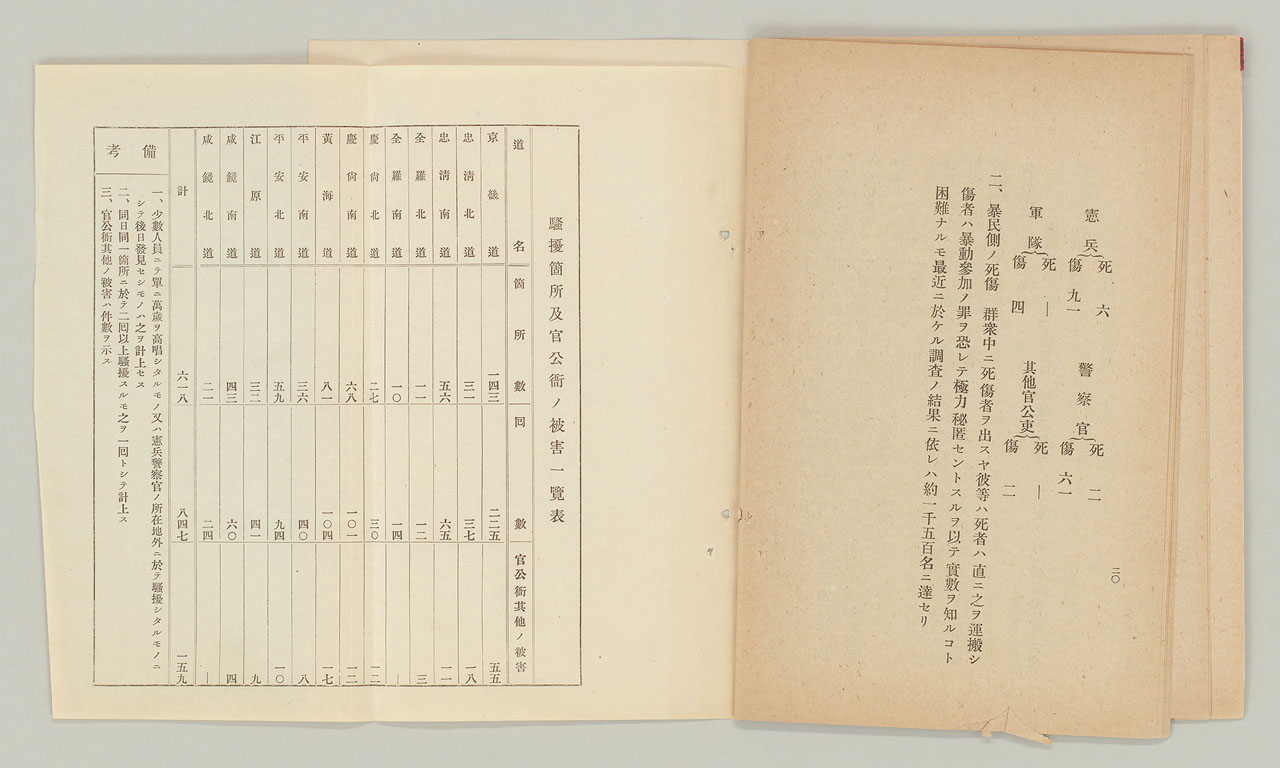 二〇
憲兵 死 六
傷 九一
警察官 死 二
傷 六一
軍隊 死 ―
傷 四
其他官公吏 死 ―
傷 二
二、暴民側ノ死傷 群衆中ニ死傷者ヲ出スヤ彼等ハ死者ハ直ニ之ヲ運搬シ
傷者ハ暴動參加ノ罪ヲ恐レテ極力秘匿セントスルヲ以テ實數ヲ知ルコト
困難ナルモ最近ニ於ケル調査ノ結果ニ依レハ約一千五百名ニ達セリ
騷擾箇所及官公衙ノ被害一覽表
道名 箇所數 回數 官公衙其他ノ被害
京畿道 一四三 二二五 五五
忠淸北道 三一 三七 一八
忠淸南道 五六 六五 一一
全羅北道 一一 一二 三
全羅南道 一〇 一四 ―
慶尙北道 二七 三〇 一二
慶尙南道 六八 一〇一 一二
黃海道 八一 一〇四 一七
平安南道 三六 四〇 八
平安北道 五九 九四 一〇
江原道 三二 四一 九
咸鏡南道 四三 六〇 四
咸鏡北道 二一 二四 ―
計 六一八 八四七 一五九
備考
一、少數人員ニテ單ニ萬歲ヲ高唱シタルモノ又ハ憲兵警察官ノ所在地外ニ於テ騷擾シタルモノニ
シテ後日發見セシモノハ之ヲ計上セス
二、同日同一箇所ニ於テ二回以上騷擾スルモ之ヲ一回トシテ計上ス
三、官公衙其他ノ被害ハ件數ヲ示ス